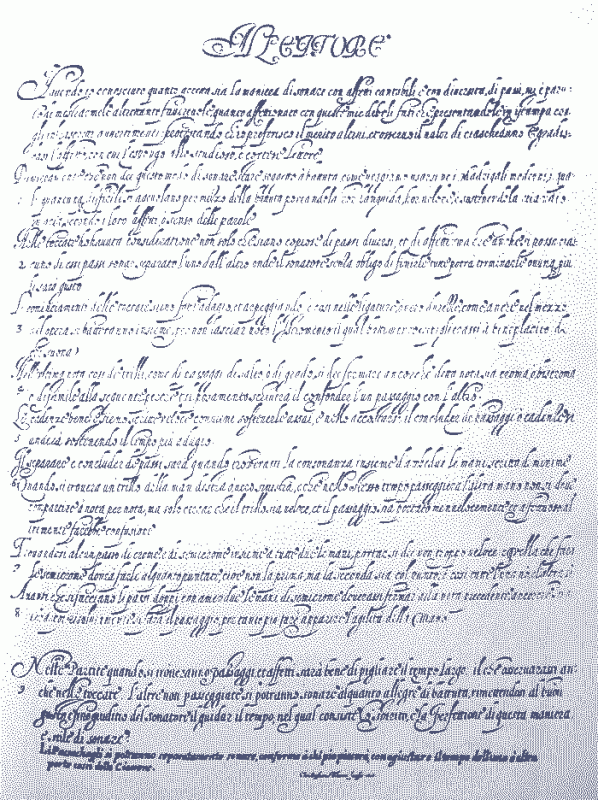 AL LETTORE
Havendo io conosciuto quanto accetta sia la maniera di sonare con affetti cantabili e con diversità di passi, mi è paru-
to dimostrarmele altretanto favorevole, quanto affettionato con queste mie deboli fatiche, presentandole in istampa con
gli infrascritti avertimenti; protestando ch'io preferisco il merito altrui, et osservo il valor di ciascheduno. E gradis-
casi l'affetto, con cui l'espongo allo studioso, e cortese Lettore.
Primieramente; che non dee questo modo di sonare stare soggetto à battuta; come veggiamo usarsi ne i Madrigali moderni, i qua-
1 li quantunque difficili si agevolano per mezzo della battuta portandola hor languida, hor veloce, e sostenendola etiandio
in aria, secondo i loro affetti, o senso delle parole.
Nelle toccate ho havuta consideratione non solo che siano copiose di passi diversi, et di affetti: ma che anche si possa cias-
2 cuno di essi passi sonar separato l'uno dall'altro: onde il sonatore senza obligo di finirle tutte potrà terminarle ovunque più
li sarà gusto.
Li cominciamenti delle toccate sieno fatti adagio, et arpeggiando: e così nelle ligature, o vero durezze, come anche nel mezzo
3 del opera si batteranno insieme, per non lasciar voto l'Istromento: il qual battimento ripiglierassi à beneplacito di
chi suona.
Nell'ultima nota così de trilli, come di passaggi di salto, o di grado, si dee fermare ancorche detta nota sia croma, o biscroma
4 o dissimile alla seguente: perche tal posamento schiverà il confonder l'un passaggio con l'altro.
Le cadenze benche sieno scritte veloce conviene sostenerle assai; e nello accostarsi il concluder de passaggi o cadenze si
5 anderà sostenendo il tempo più adagio.
Il separare e concluder de passi sarà quando troverassi la consonanza insieme d'ambedue le mani scritta di minime.
6 Quando si troverà un trillo della man destra, o vero sinistra, e che nello stesso tempo passeggierà l'altra mano non si deve
compartire à nota per nota, ma solo cercar che il trillo sia veloce, et il passaggio sia portato men velocemente et affettuoso: al-
trimente farebbe confusione.
Trovandosi alcun passo di crome, e di semicrome insieme a tutte due le mani, portar si dee non troppo veloce: e quella che farà
7 le semicrome dovrà farle alquanto puntate, cioè non la prima, ma la seconda sia col punto; e così tutte l'una no, e l'altra sì.
Avanti che si facciano li passi doppi con amendue le mani di semicrome doverassi fermar alla nota precedente, ancorche sia
8 nera: poi risolutamente si farà il passaggio, per tanto più fare apparire l'agilità della mano.
Nelle Partite quando si troveranno passaggi, et affetti sarà bene di pigliare il tempo largo; il che osservarassi an-
9 che nelle toccate. L'altre non passeggiate si potranno sonare alquanto allegre di battuta, rimettendosi al buon
gusto e fino giuditio del sonatore il guidar il tempo; nel qual consiste lo spirito, e la perfettione di questa maniera
e stile di sonare.
Li Passacagli si potranno separatamente sonare, conforme à chi più piacerà, con agiustare il tempo dell'una è altra
parte così delle Ciaccone.